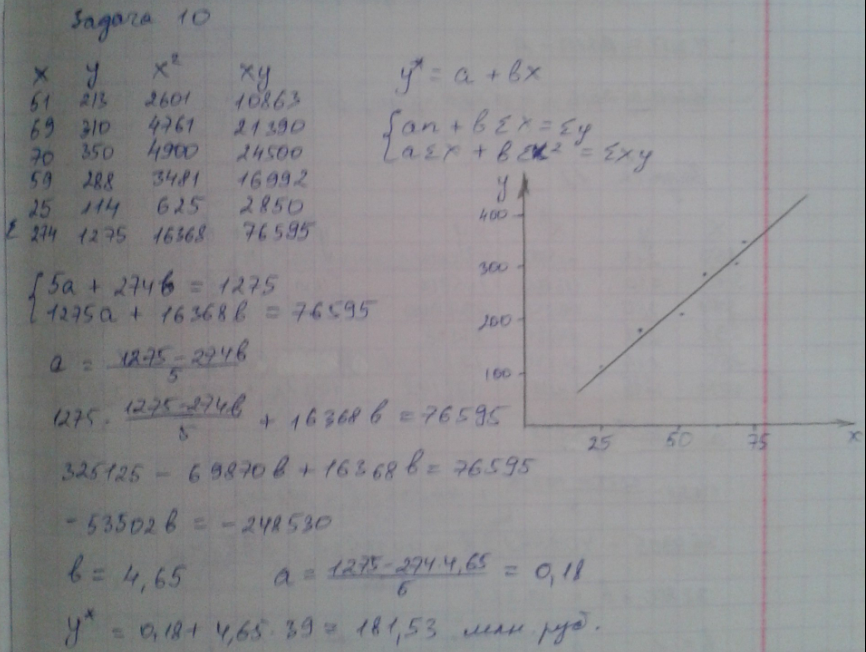 Задача 10
x y x² xy
51 213 2601 10863
69 310 4761 21390
70 350 4900 24500
59 288 3481 16992
25 114 625 2850
Σ 274 1275 16368 76595
y* = a + bx
{an + bΣx = Σy
aΣx + bΣx² = Σxy
y
400
300
200
100
25 50 75 x
{5a + 274b = 1275
1275a + 16368b = 76595
a = (1275 - 274b)/5
1275 · (1275 - 274b)/5 + 16368b = 76595
325125 - 69870b + 16368b = 76595
-53502b = -248530
b = 4,65 a = (1275 - 274·4,65)/5 = 0,18
y* = 0,18 + 4,65 · 39 = 181,53 млн. руб.